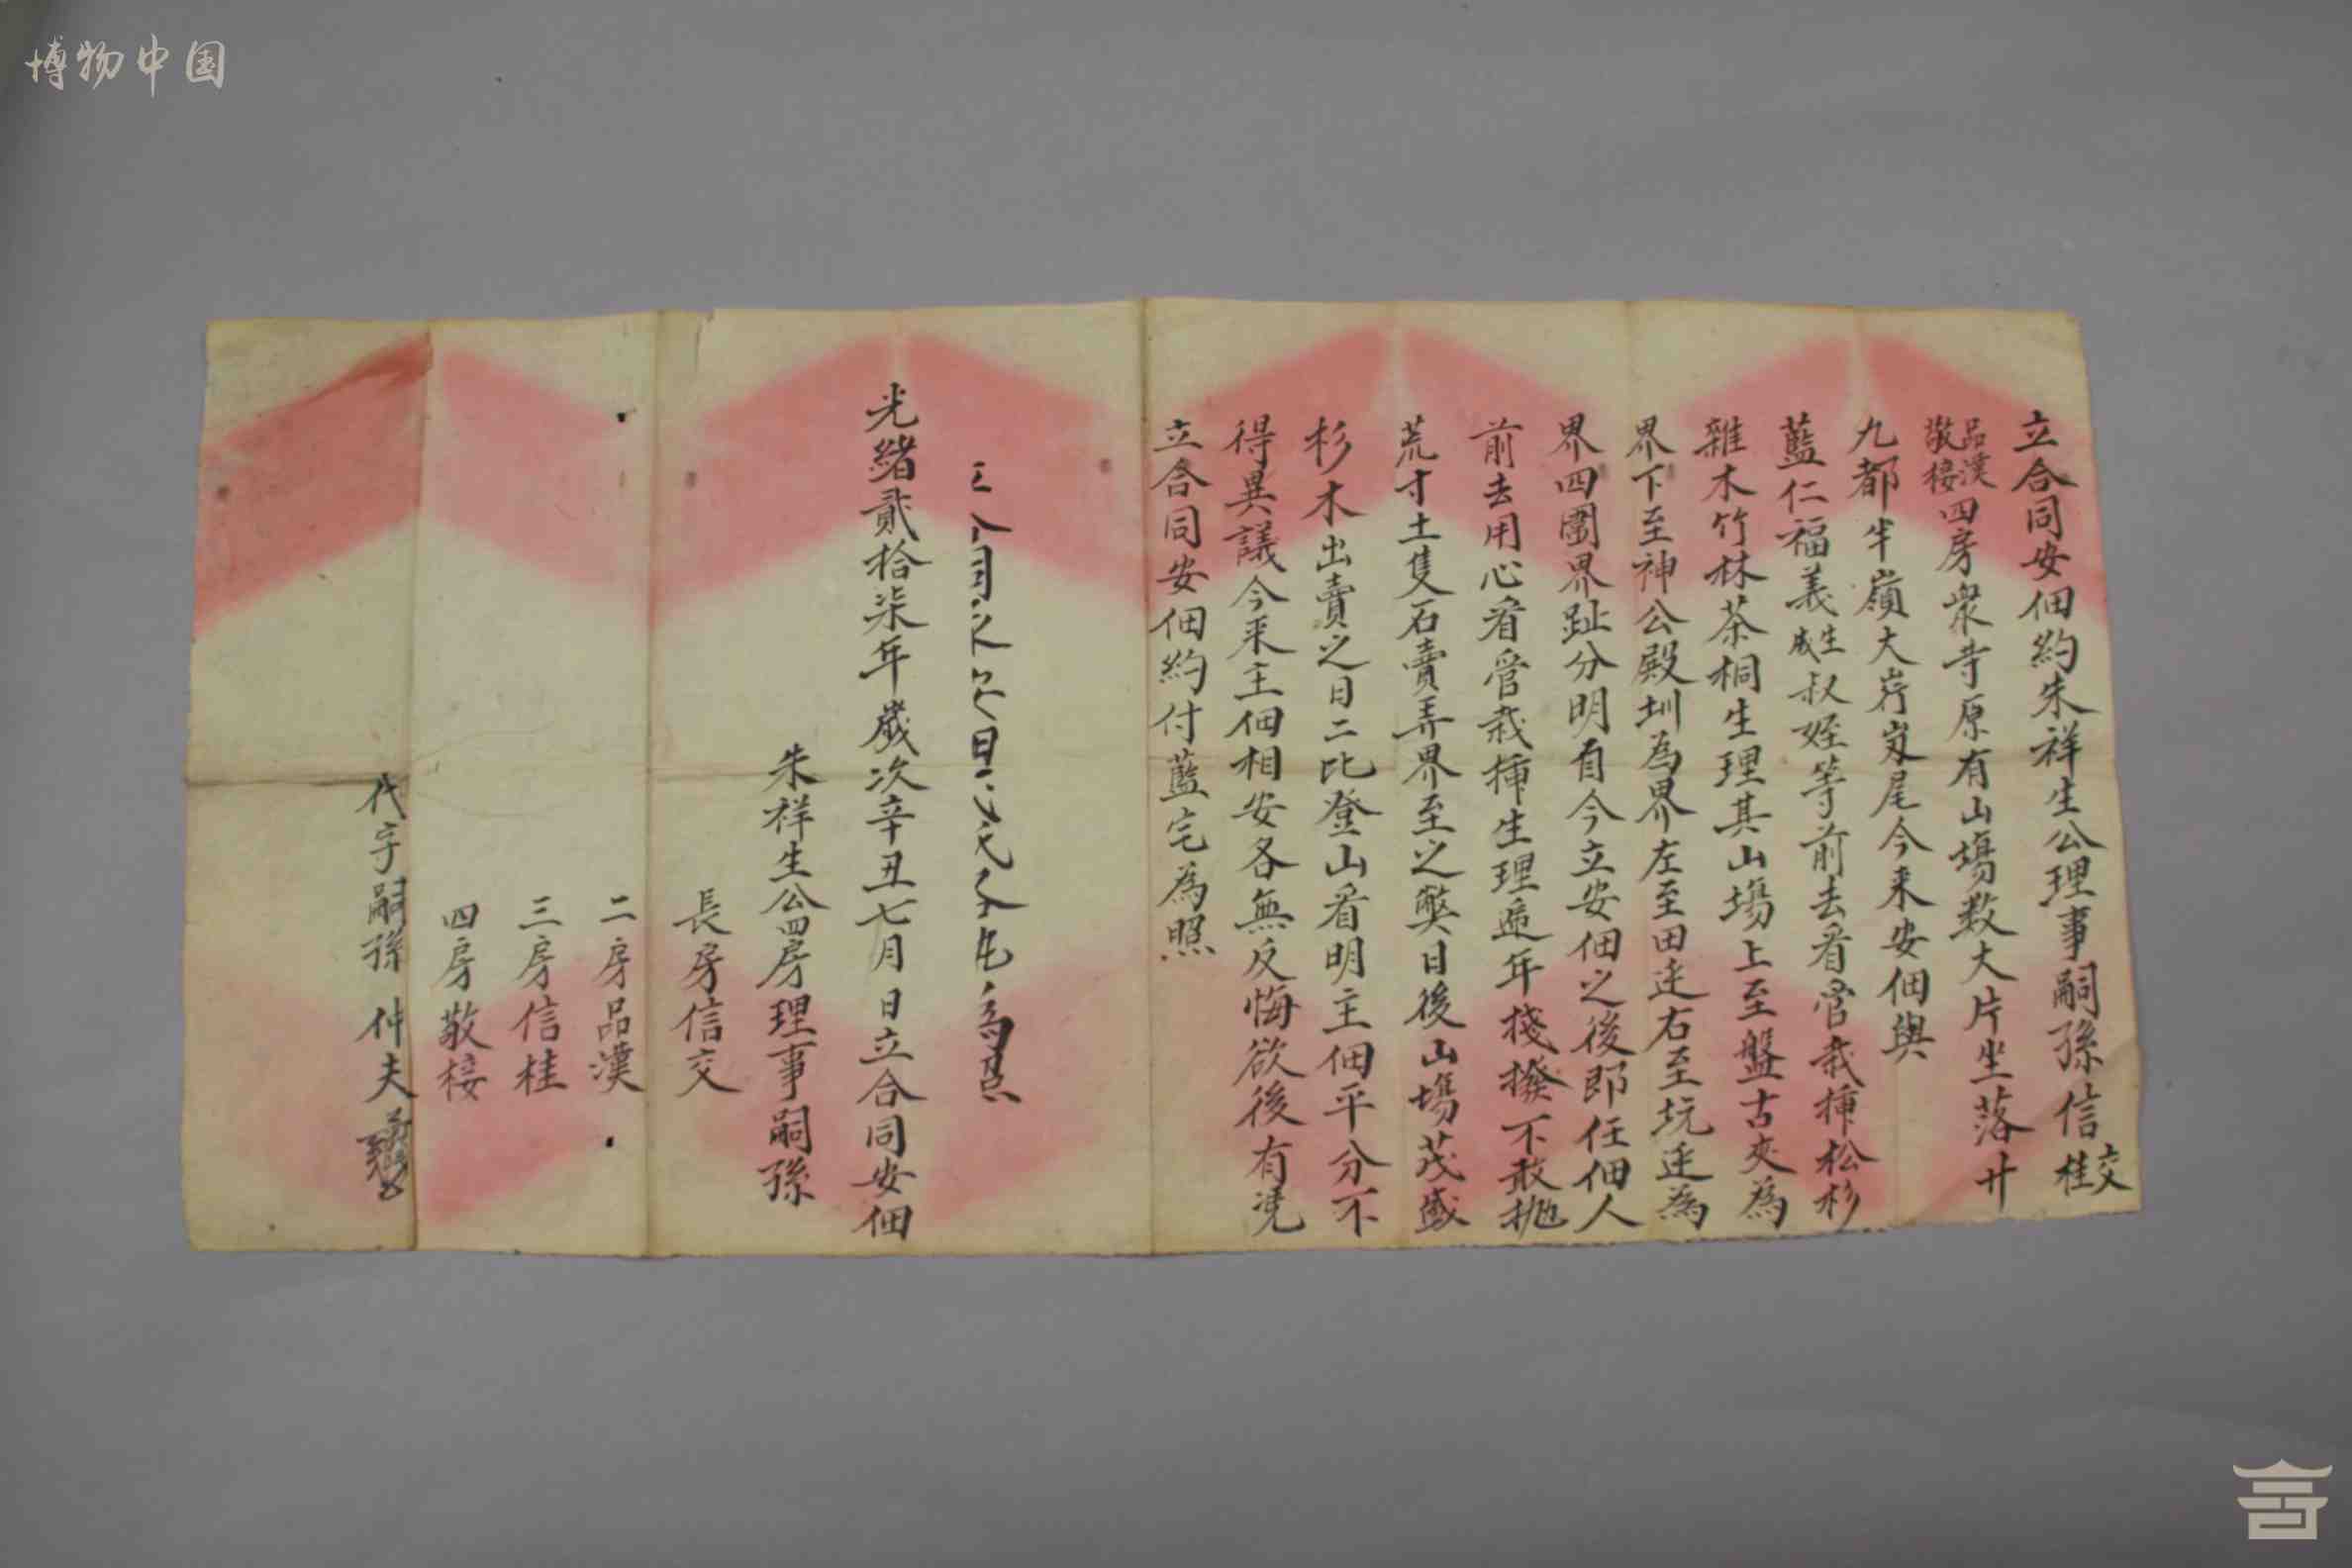 博物中国
立合同安佃約朱祥生公理事嗣孫信交桂
品漢敬棪四房衆等原有山塲数大片坐落廿
九都半嶺大岸岌尾今来安佃與
藍仁福義生成叔姪等前去看管栽揷松杉
雜木竹林茶桐生理其山塲上至盤古夾為
界下至神公殿圳為界左至田𨓍右至坑𨓍為
界四圍界趾分明自今立安佃之後即任佃人
前去用心看管栽揷生理遞年撥不敢抛
荒寸土隻石賣弄界至之弊日後山塲茂盛
杉木出賣之日二比登山看明主佃平分不
得異議今来主佃相安各無反悔欲後有凭
立合同安佃約付藍宅為照
光緒貳拾柒年歲次辛丑七月日立合同安佃
朱祥生公四房理事嗣孫
長房信交
二房品漢
三房信桂
四房敬棪
代字嗣孫仲夫